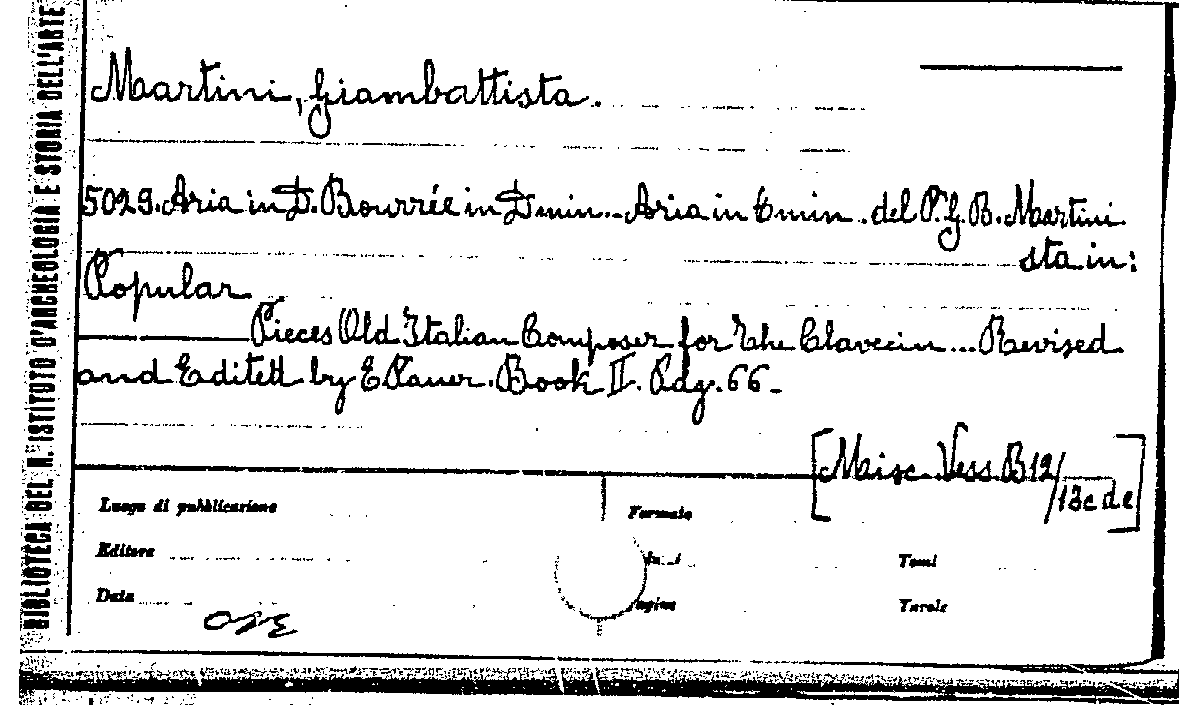 BIBLIOTECA DEL R. ISTITUTO D'ARCHEOLOGIA E STORIA DELL'ARTE
Martini, Giambattista.
5029. Aria in D. Bourrée in D min.. Aria in E min. del P. G. B. Martini
sta in:
Popular
Pieces Old Italian Composer for The Clavecin... Revised
and Editett by E Pauer. Book II. Pag. 66_
[Misc. Vess. B 12/13c de]
Luogo di pubblicazione
Formato
Editore
Tomi
Data
Pagine
Tavole